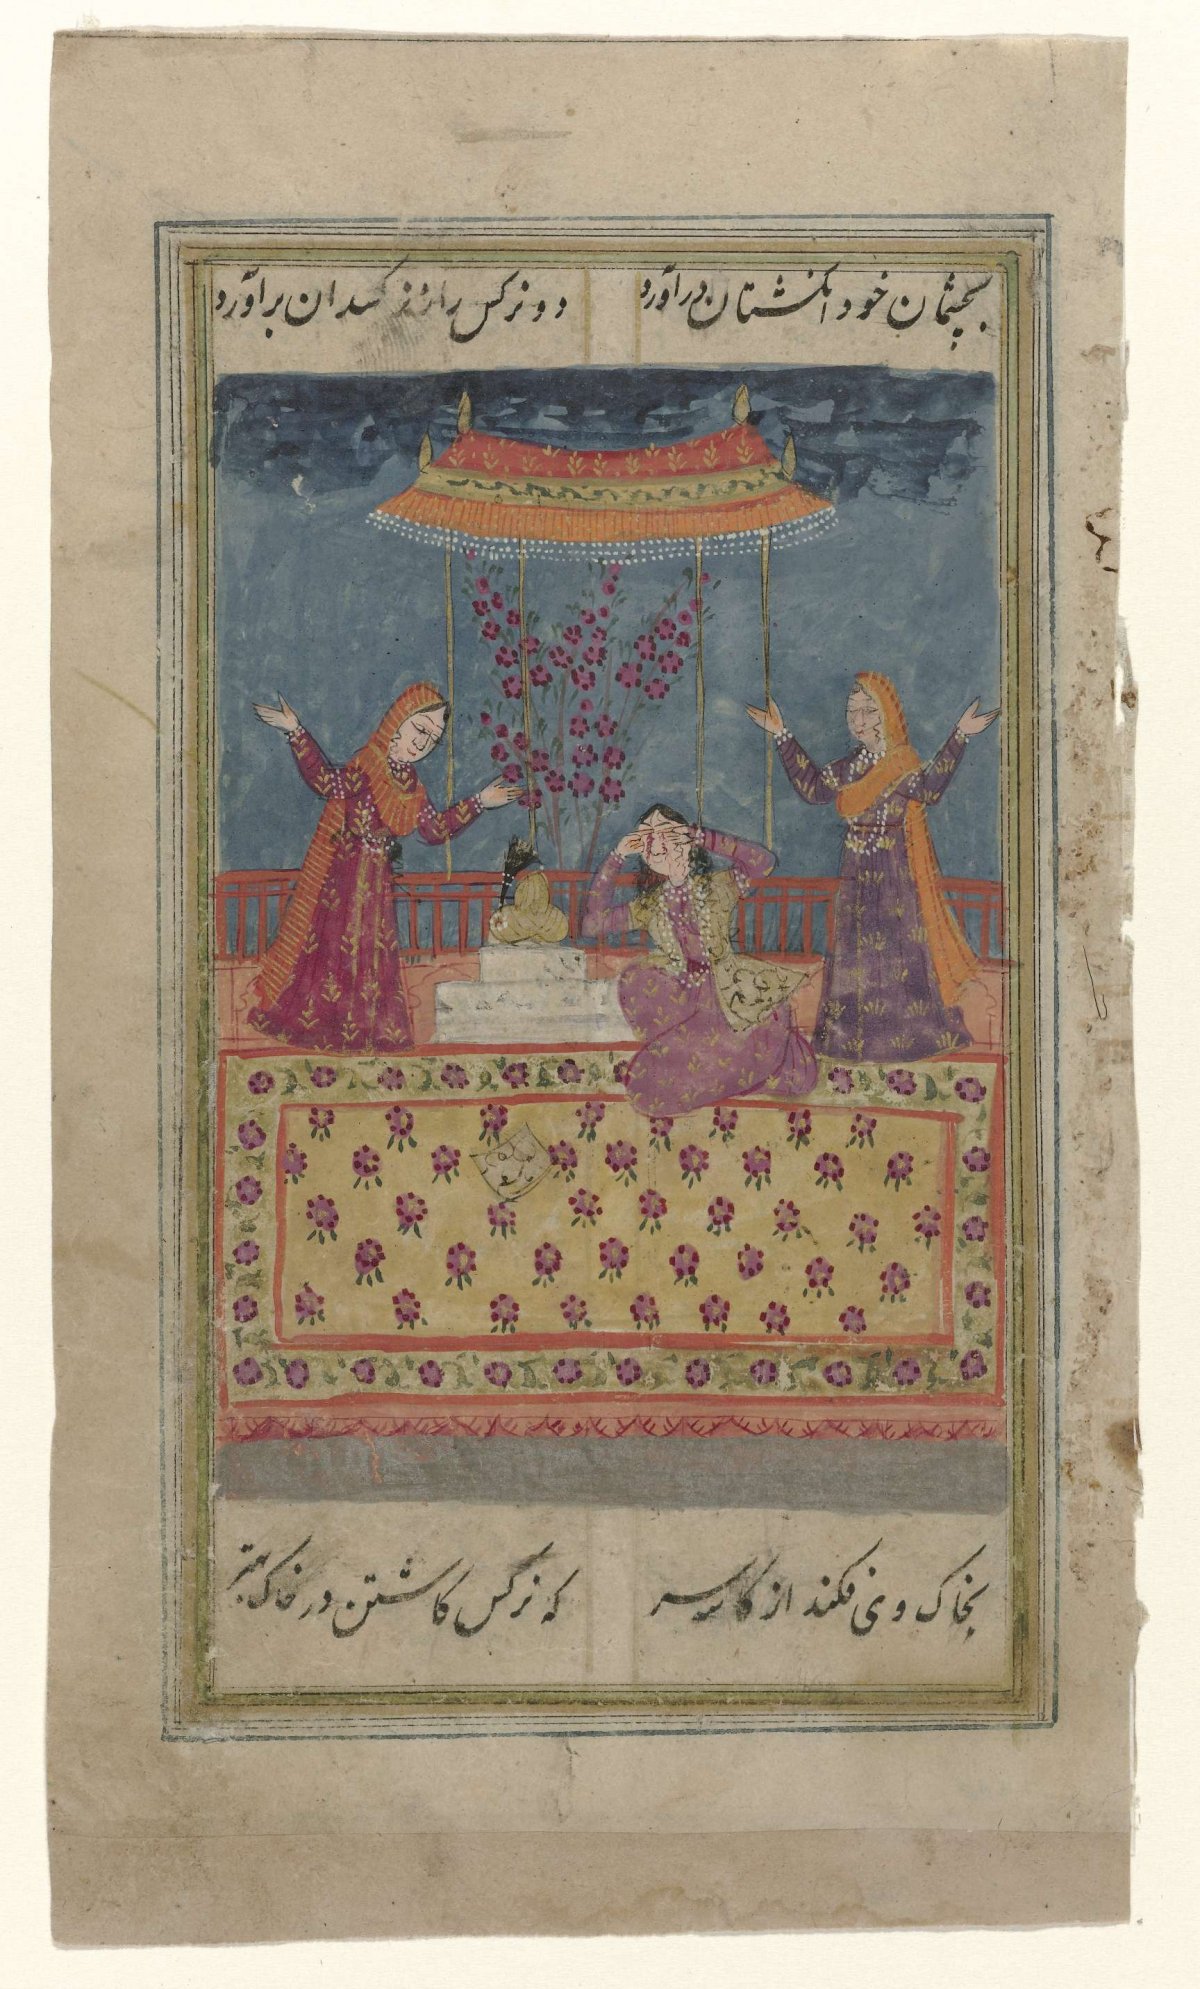 بچشمان خود انگشتان درآورد
دو نرگس را ز نرگسدان برآورد
بخاک وی فکند از کاسه سر
که نرگس کاشتن در خاک بهتر